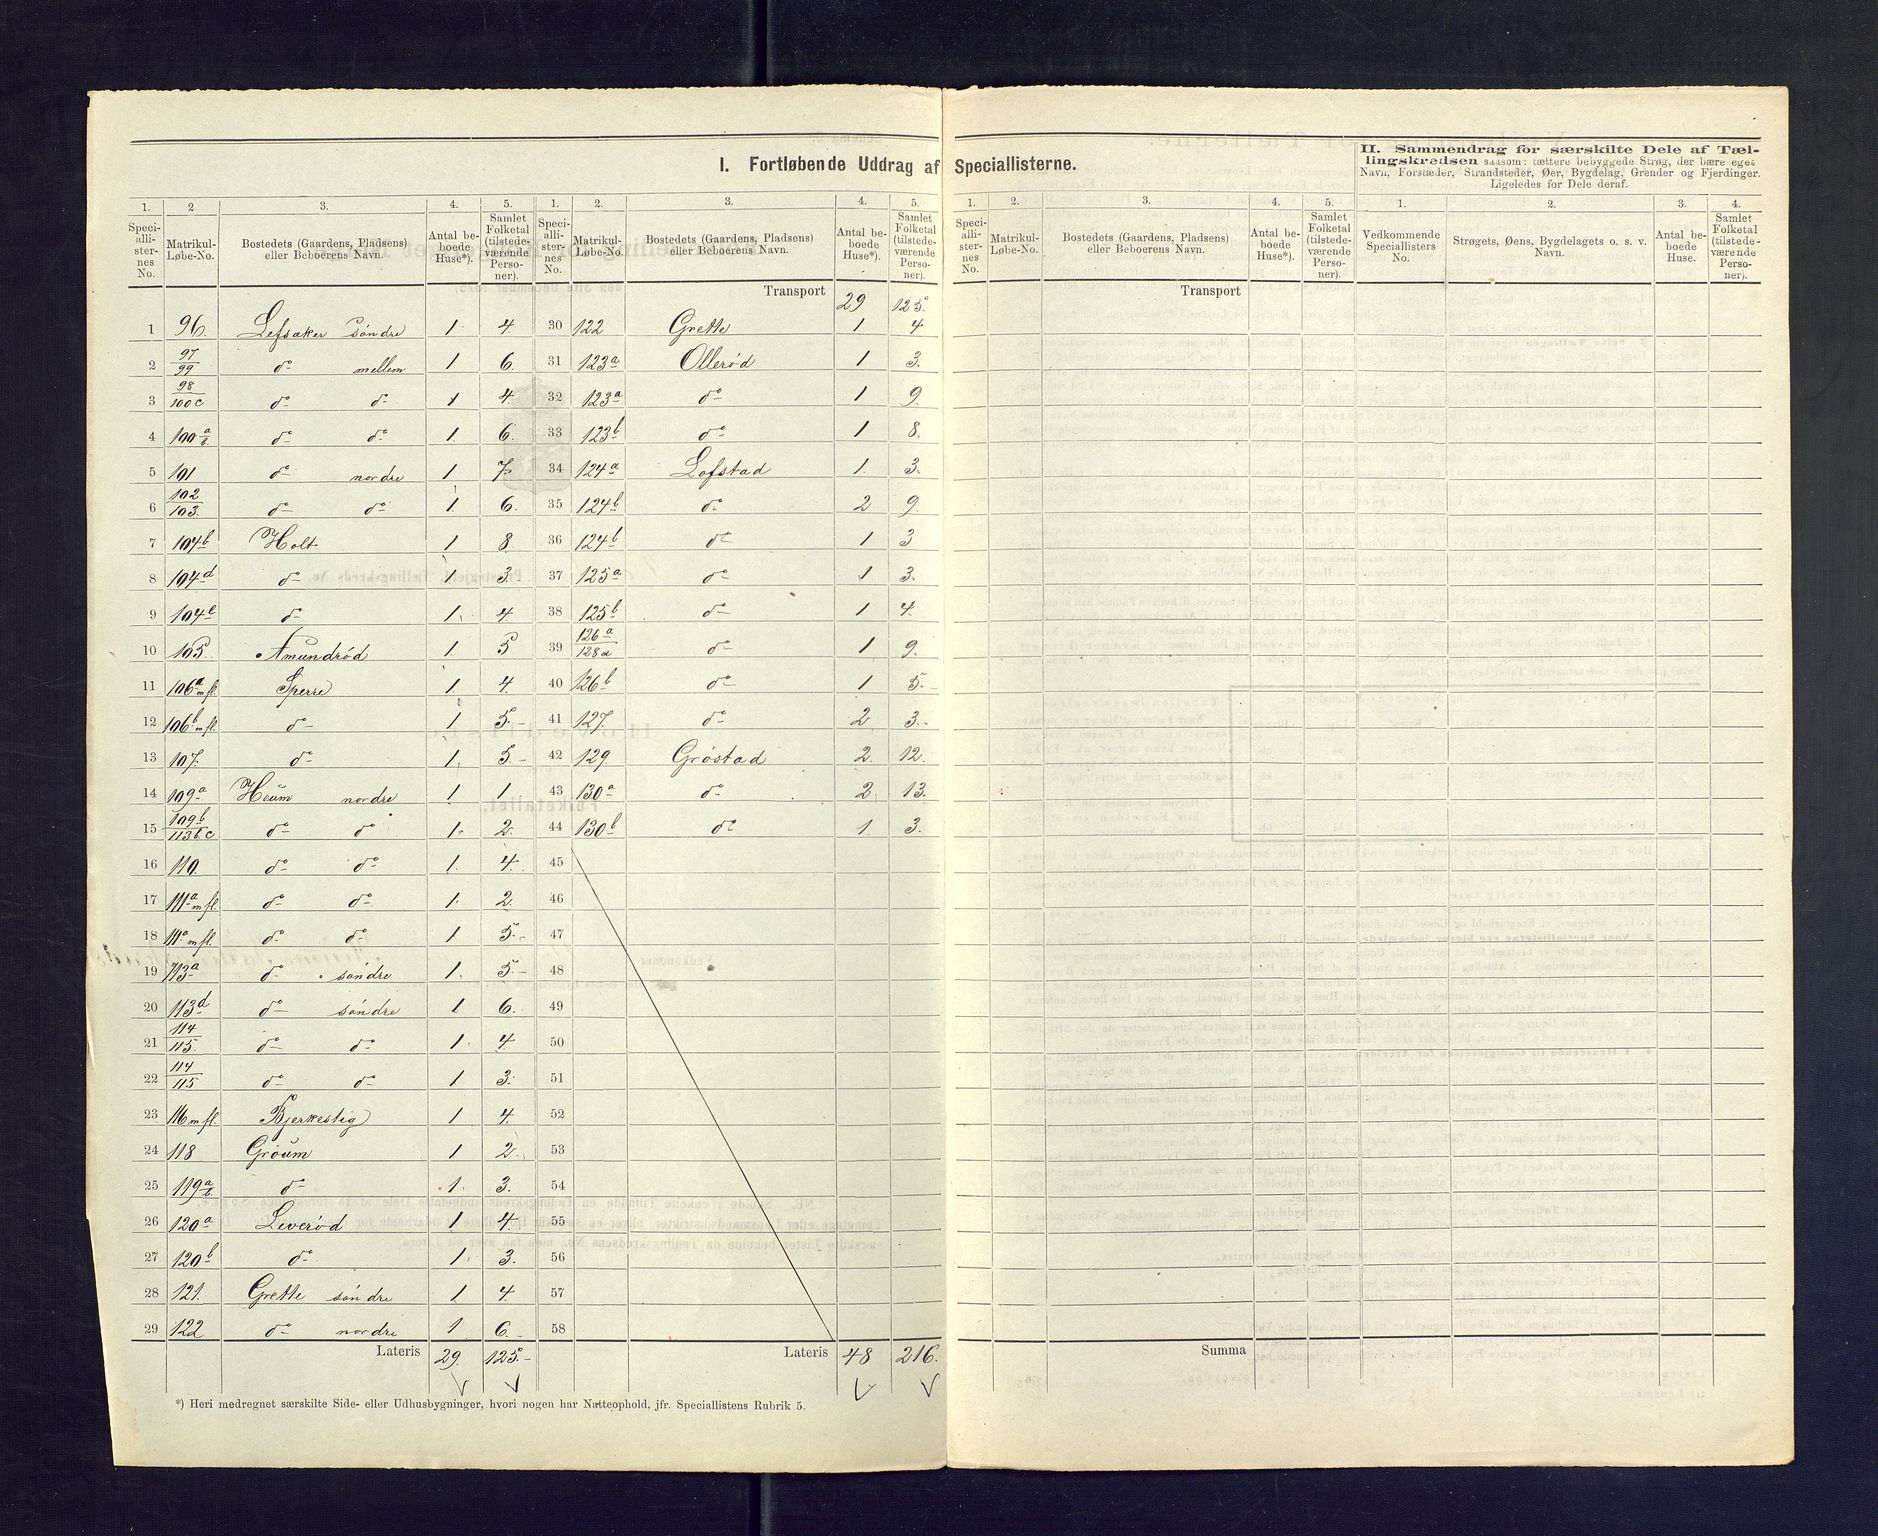 I. Fortløbende Uddrag af Speciallisterne.
II. Sammendrag for særskilte Dele af Tællingskredsen saasom: tættere bebyggede Strøg, der bære eget Navn, Forstæder, Strandsteder, Øer, Bygdelag, Grender og Fjerdinger. Ligeledes for Dele deraf.
1. 2 3. 4. 5. 1. 2. 3. 4. 5. 1. 2. 3. 4. 5. 1. 2. 3. 4.
Speciallisternes No. Matrikul-Løbe-No. Bostedets (Gaardens, Pladsens) eller Beboerens Navn. Antal beboede Huse*). Samlet Folketal (tilstedeværende Personer).
Speciallisternes No. Matrikul-Løbe-No. Bostedets (Gaardens, Pladsens) eller Beboerens Navn. Antal beboede Huse*). Samlet Folketal (tilstedeværende Personer).
Speciallisternes No. Matrikul-Løbe-No. Bostedets (Gaardens, Pladsens) eller Beboerens Navn. Antal beboede Huse*). Samlet Folketal (tilstedeværende Personer).
Vedkommende Speciallisters No. Strøgets, Øens, Bygdelagets o. s. v. Navn. Antal beboede Huse. Samlet Folketal (tilstedeværende Personer).
Transport 29 125.
Transport
1 96. Lefsaker søndre 1. 4. 30 122 Grette 1 4
2 97/99 do mellem 1 6. 31 123a Ollerød 1 3.
3 98/100c do do 1 4. 32 123a do 1 9.
4 100a/b do do 1. 6. 33 123b do 1 8.
5 101 do nordre 1 7. 34 124a Lofstad 1. 3.
6 102/103. do do 1. 6. 35 124b do 2 9.
7 104b Holt 1 8. 36 124b do 1 3
8 104d do 1. 3. 37 125a do 1 3.
9 104e do 1. 4 38 125b do 1 4.
10 105. Amundrød 1. 5 39 126a/128a do 1. 9.
11 106a m fl. Sperre 1 4. 40 126b do 1 5.-
12 106b m fl. do 1 5.- 41 127. do 2 3.-
13 107. do 1. 5.- 42 129. Grøstad 2. 12.
14 109a Heum nordre 1 1 43 130a do 2. 13.
15 109b/113b c do do 1. 2. 44 130b do 1. 3.
16 110. do do 1. 4. 45
17 111a m fl. do do 1. 2. 46
18 111a m fl. do do 1 5. 47
19 113a do søndre 1. 5.- 48
20 113d do søndre 1 6. 49
21 114/115. do do 1. 4. 50
22 114/115 do do 1 3. 51
23 116 m fl. Bjerkestig 1 4. 52
24 118 Grøum 1 2. 53
25 119a/b. do 1. 3. 54
26 120a Leverød 1 4. 55
27 120b do 1. 3. 56
28 121. Grette søndre 1 4. 57
29 122 do nordre 1 6.- 58
Lateris 29. 125.- Lateris 48 216.
Summa
*) Heri medregnet særskilte Side- eller Udhusbygninger, hvori nogen har Natteophold, jfr. Speciallistens Rubrik 5.